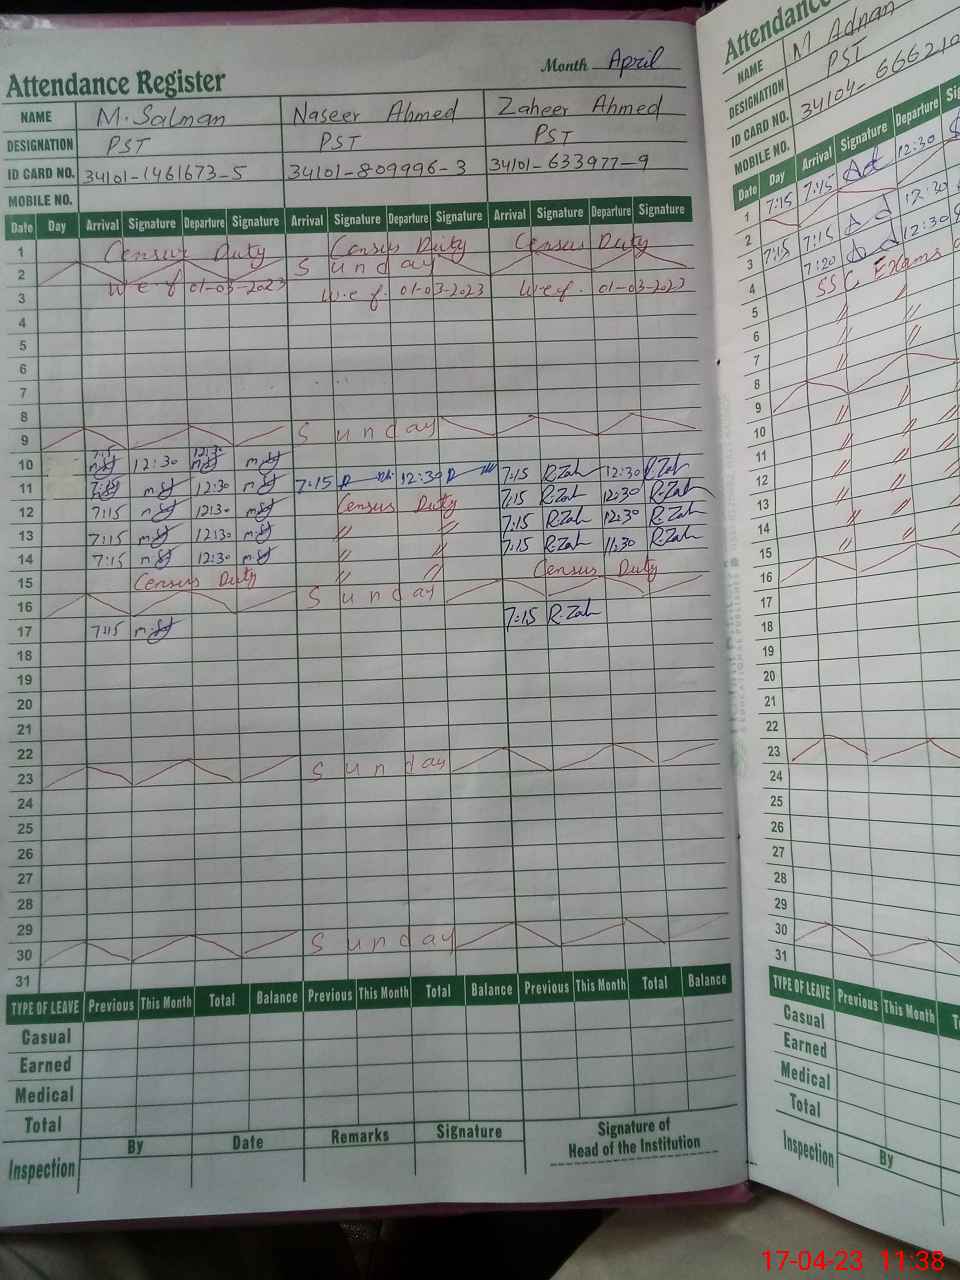 Attendance Register Month April
NAME M. Salman Naseer Ahmed Zaheer Ahmed
DESIGNATION PST PST PST
ID CARD NO. 34101-1461673-5 34101-809996-3 34101-633977-9
MOBILE NO.
Date Day Arrival Signature Departure Signature Arrival Signature Departure Signature Arrival Signature Departure Signature
1 Census Duty Census Duty Census Duty
2 Sunday
3 w.e.f 01-03-2023 w.e.f. 01-03-2023 w.e.f. 01-03-2023
4
5
6
7
8
9 Sunday
10 7:15 12:30 12:30
11 7:15 12:30 7:15 12:30 7:15 R.Zah 12:30 R.Zah
12 7:15 12:30 Census Duty 7:15 R.Zah 12:30 R.Zah
13 7:15 12:30 // // 7:15 R.Zah 12:30 R.Zah
14 7:15 12:30 // // 7:15 R.Zah 11:30 R.Zah
15 Census Duty // // Census Duty
16 Sunday
17 7:15 7:15 R.Zah
18
19
20
21
22
23 Sunday
24
25
26
27
28
29
30 Sunday
31
TYPE OF LEAVE Previous This Month Total Balance Previous This Month Total Balance Previous This Month Total Balance
Casual
Earned
Medical
Total
Inspection By Date Remarks Signature Signature of
Head of the Institution
Attendance
NAME M Adnan
DESIGNATION PST
ID CARD NO. 34104-666210
MOBILE NO.
Date Day Arrival Signature Departure Sig
1 7:15 7:15 Ad 12:30
2
3 7:15 7:15 Ad 12:30
4 7:20 Ad 12:30
5 SSC Exams
6 // //
7 // //
8
9
10 // //
11 // //
12 // //
13 // //
14 // //
15 // //
16
17
18
19
20
21
22
23
24
25
26
27
28
29
30
31
TYPE OF LEAVE Previous This Month
Casual
Earned
Medical
Total
Inspection By
17-04-23 11:38